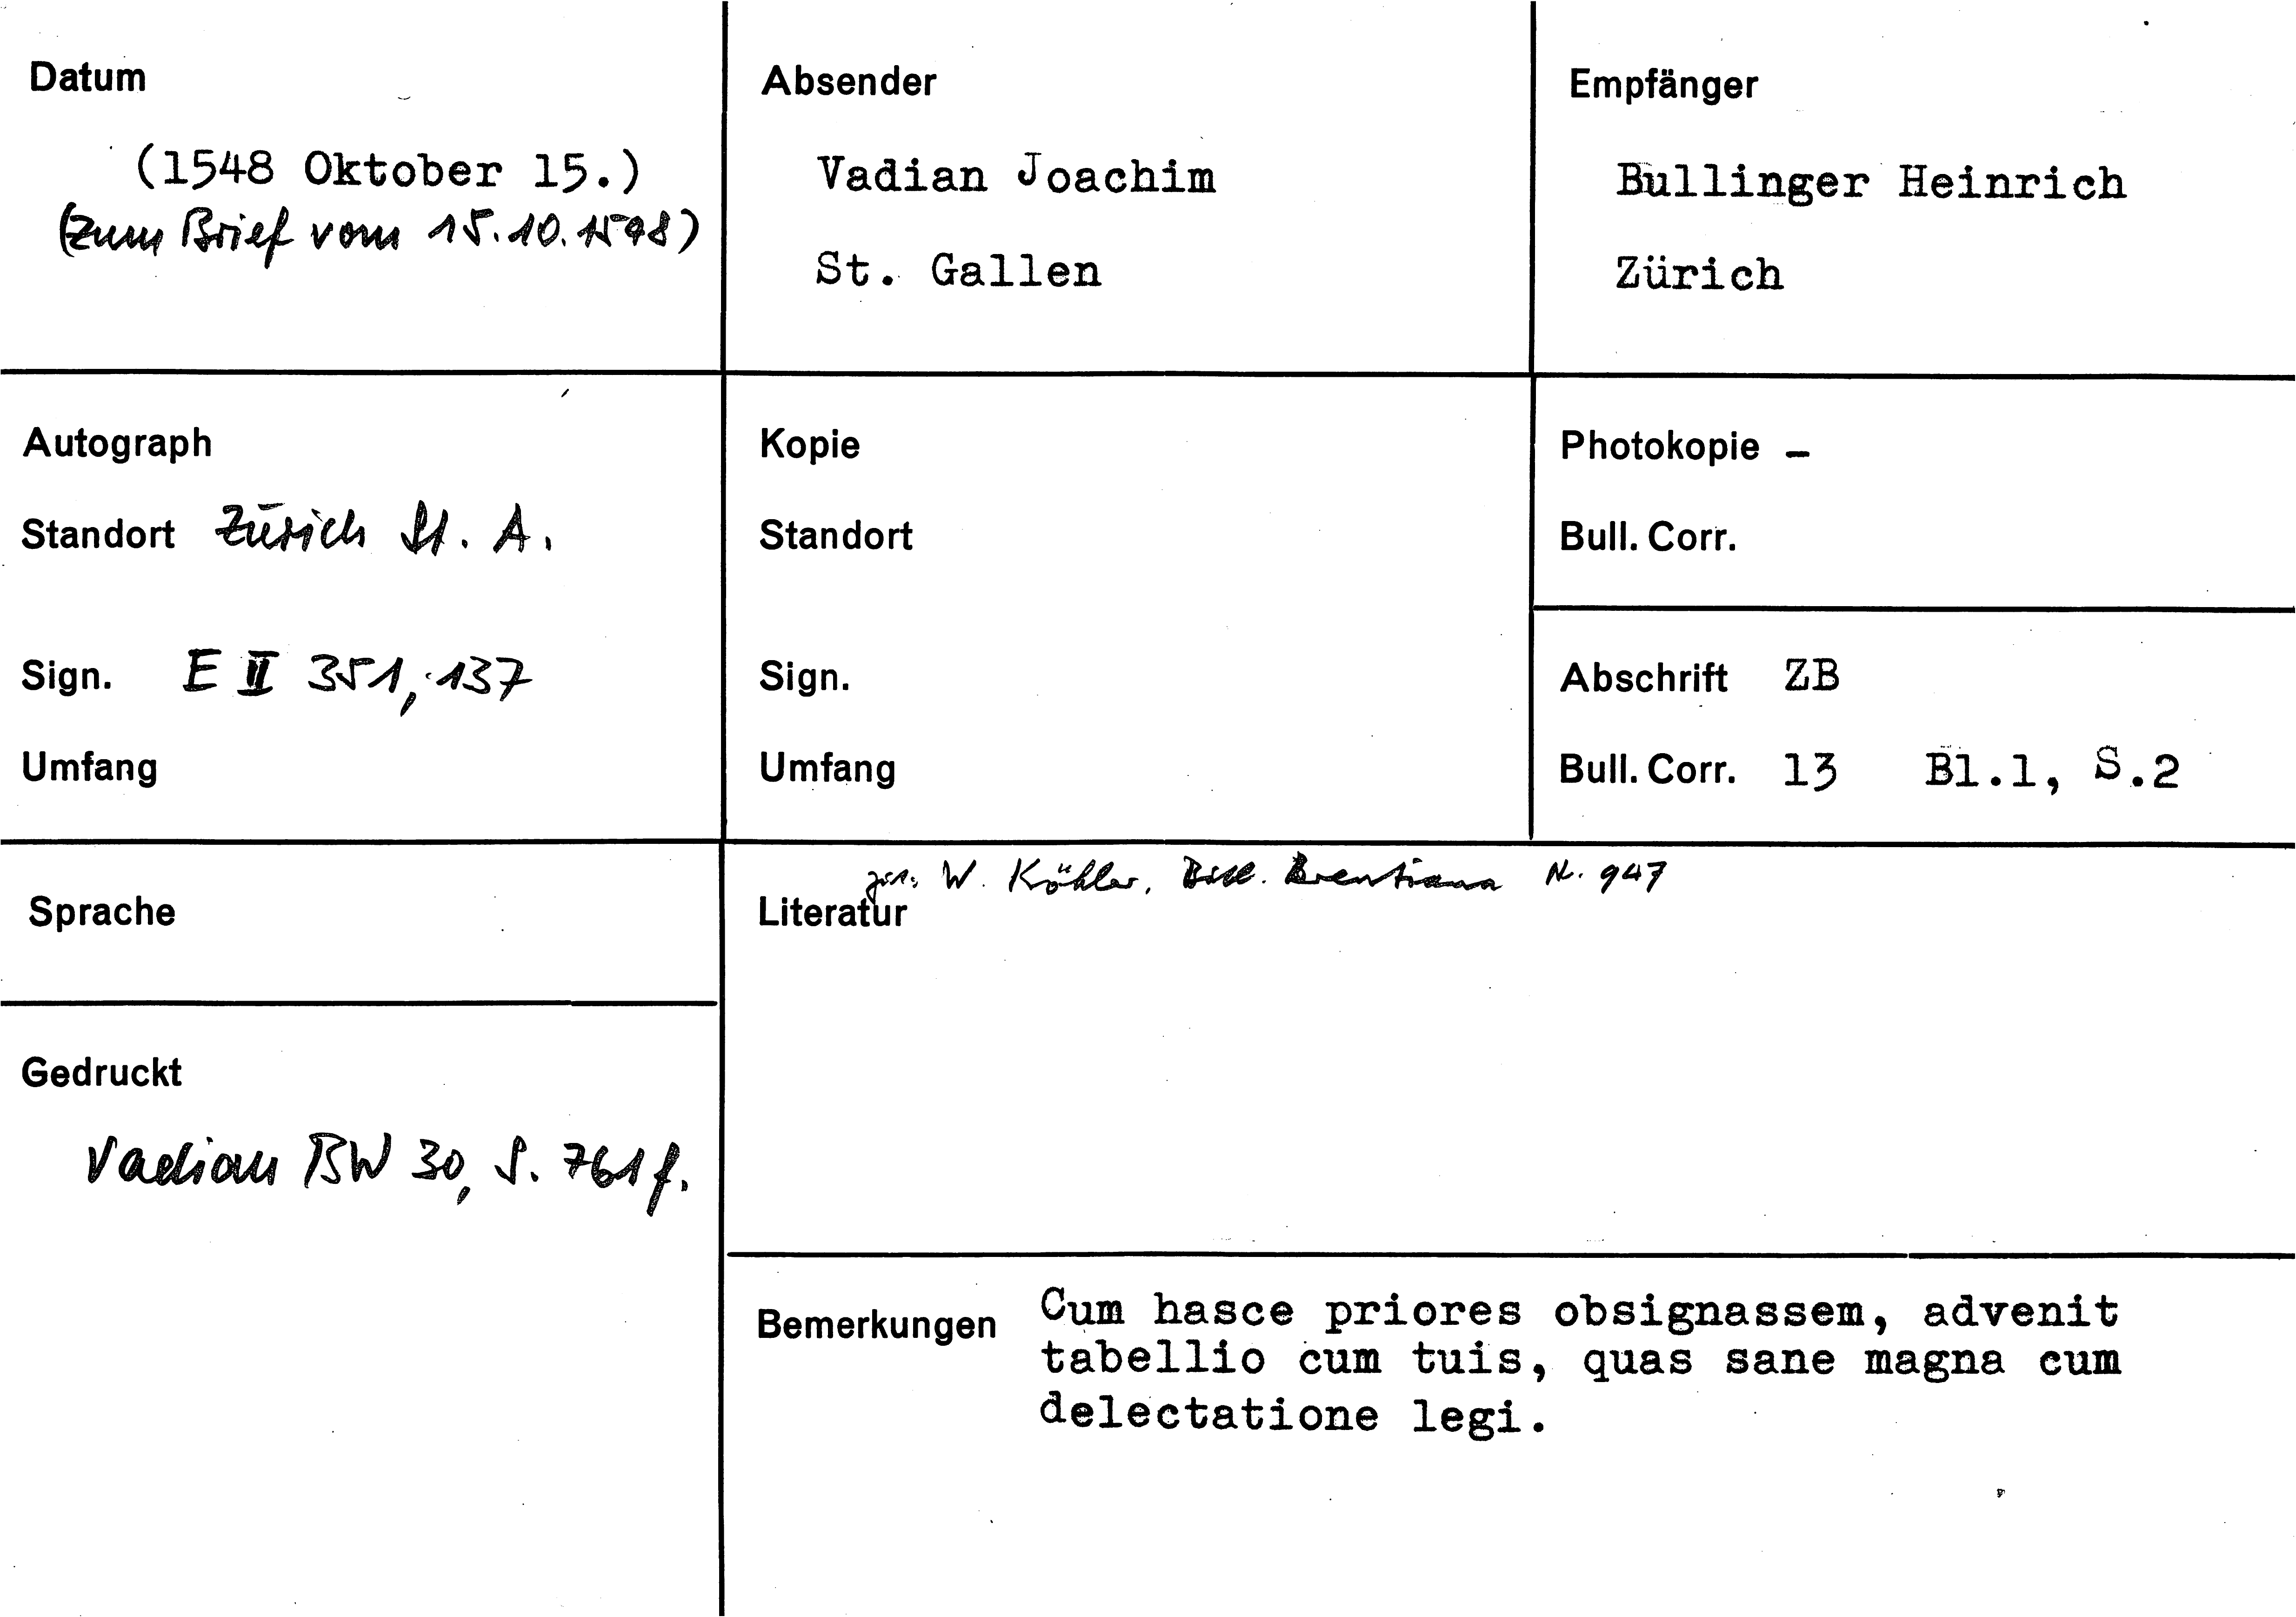 Datum
(1548 Oktober 15.)
(zum Brief vom 15.10.1548)
Absender
Vadian Joachim
St. Gallen
Empfänger
Bullinger Heinrich
Zürich
Autograph
Standort Zürich St. A.
Sign. E II 351, 137
Umfang
Kopie
Standort
Sign.
Umfang
Photokopie –
Bull. Corr.
Abschrift ZB
Bull. Corr. 13 Bl.1, S.2
Sprache
Gedruckt
Vadian BW 30, S. 761 f.
W. Köhler, Bibl. Brentiana N. 947
Literatur
Bemerkungen Cum hasce priores obsignassem, advenit
tabellio cum tuis, quas sane magna cum
delectatione legi.